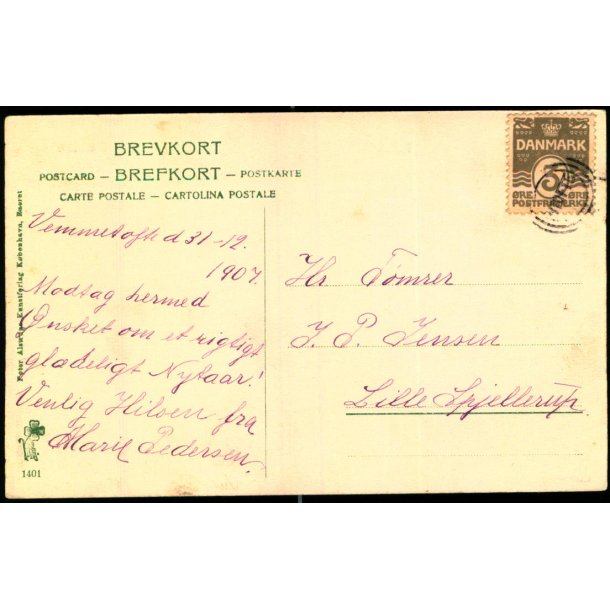 BREVKORT
POSTCARD — BREFKORT — POSTKARTE
CARTE POSTALE — CARTOLINA POSTALE
DANMARK
3
ØRE ØRE
POSTFRIMÆRKE
Vemmetofte d 31-12.
1907.
Modtag hermed
Ønsket om et rigtigt
glædeligt Nytaar!
Venlig Hilsen fra
Marie Pedersen.
Hr Tømrer
J. P. Jensen
Lille Spjellerup.
Peter Alstrups Kunstforlag København, Eneret
1401